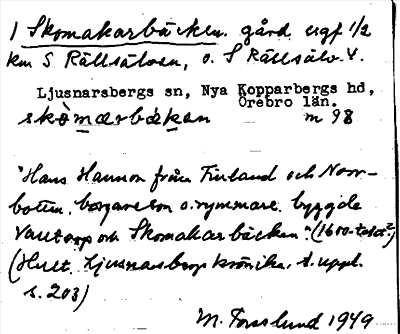 1 Skomakarbäcken. gård ugf 1/2
km S Rällsälven, o. S Rällsälv. V.
Ljusnarsbergs sn, Nya Kopparbergs hd,
Örebro län.
skòmærbækan m 98
"Hans Hannon från Finland och Norr-
botten, borgareson o. rymmare. byggde
och Skomakarbäcken." (1600-talet?)
(Hult. Ljusnarsbergs krönika, 2. uppl.
s. 203)
M. Forsslund 1949